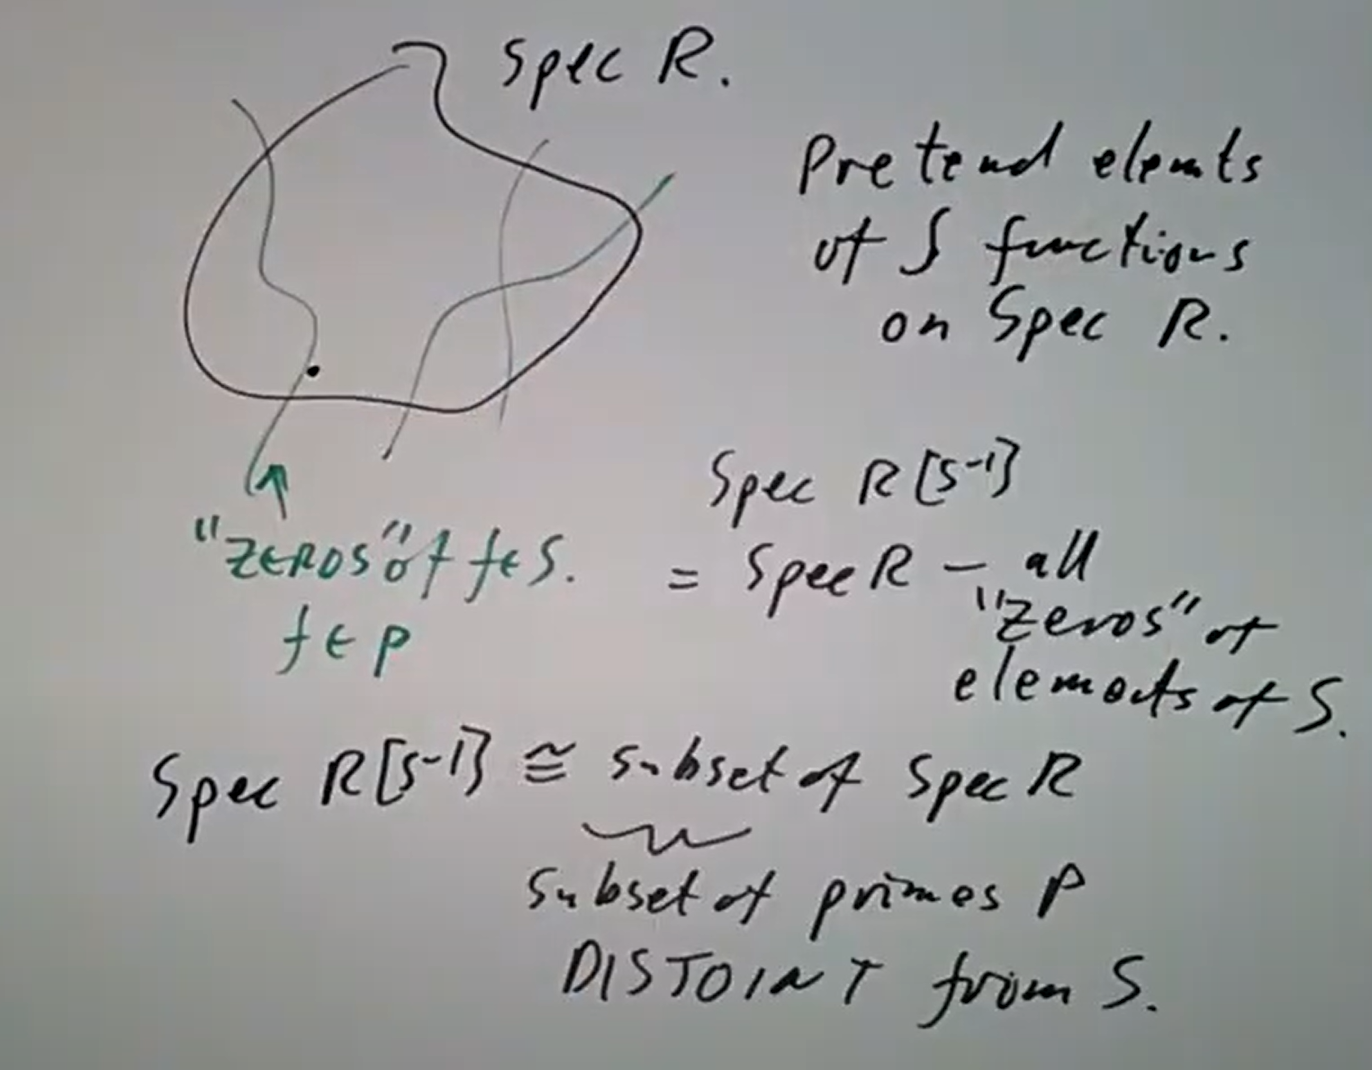 Spec R.
Pretend elemts
of S functions
on Spec R.
"ZEROS" of f∈S.
f ∈ p
Spec R[S⁻¹]
= Spec R − all
"zeros" of
elements of S.
Spec R[S⁻¹] ≅ subset of Spec R
subset of primes P
DISJOINT from S.